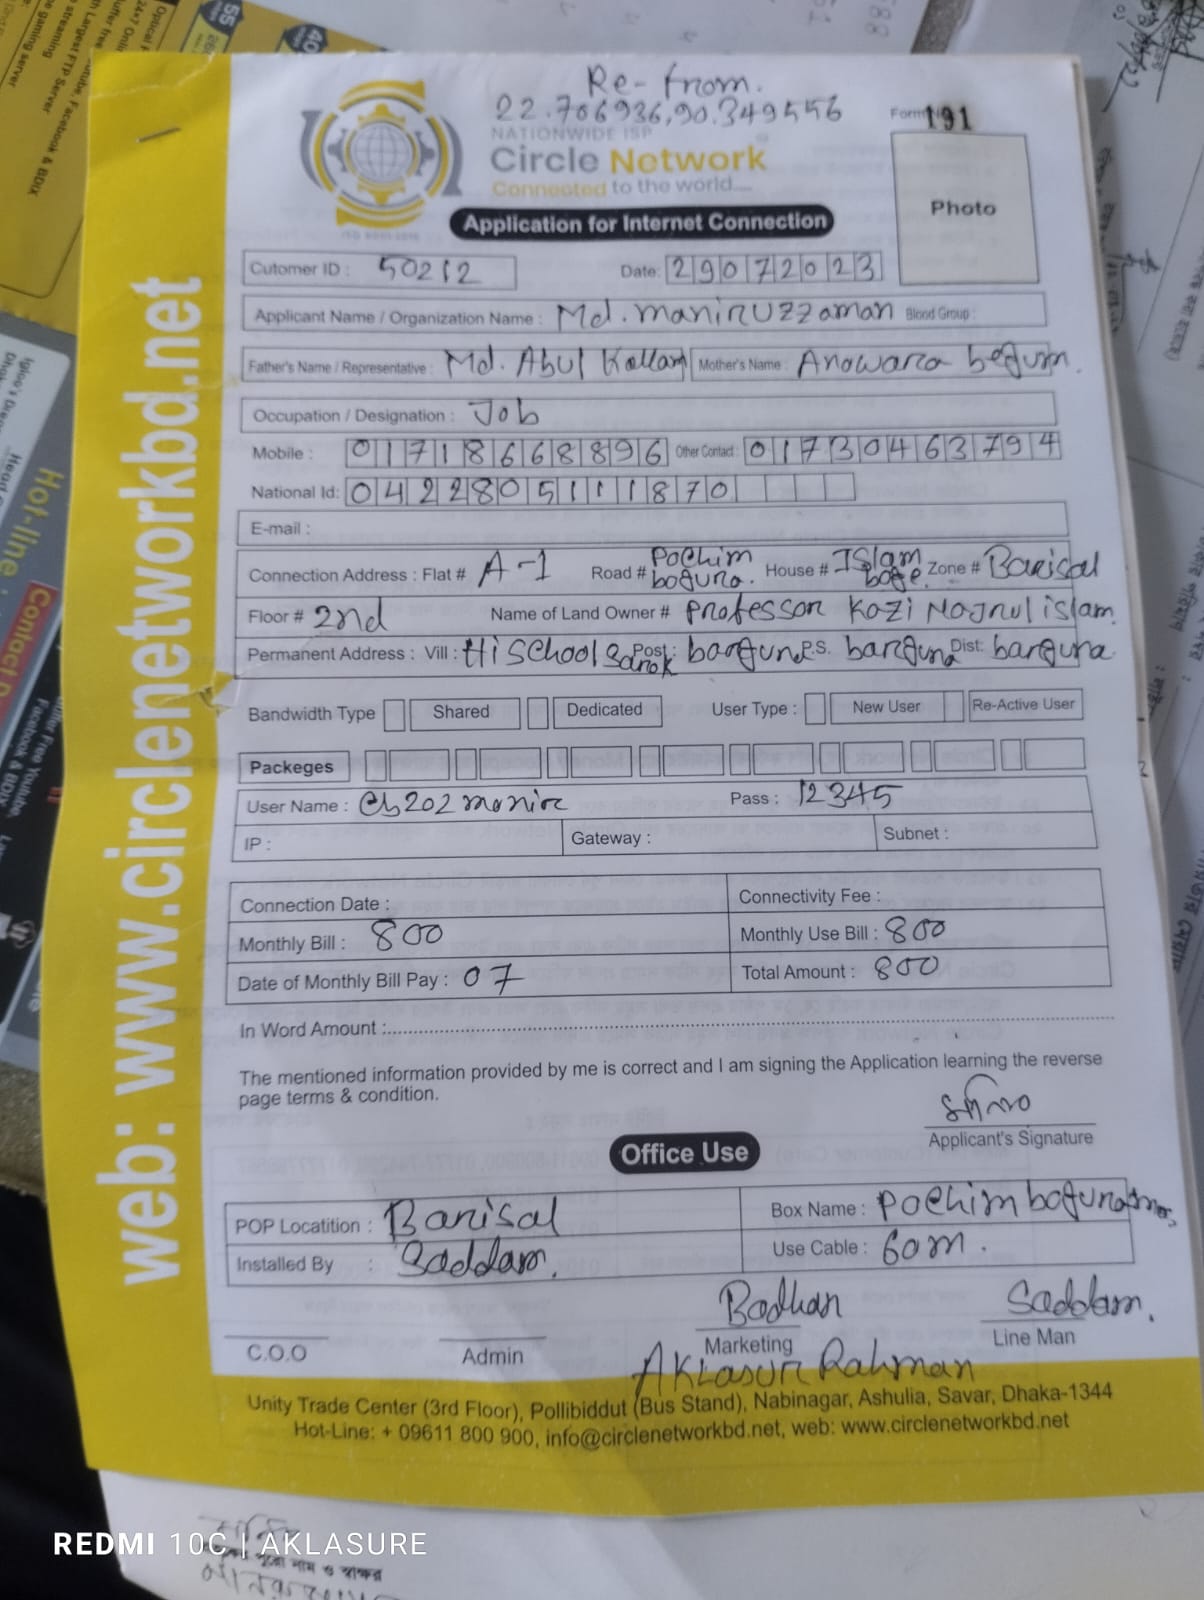 Re-from.
22.706936,90.349556
Form 191
NATIONWIDE ISP
Circle Network
Connected to the world....
Photo
Application for Internet Connection
Cutomer ID : 50212 Date: 29072023
Applicant Name / Organization Name : Md. maniruzzaman Blood Group :
Father's Name / Representative : Md. Abul Kallam Mother's Name : Anowara begum.
Occupation / Designation : Job
Mobile : 01718668896 Other Contact : 01730463794
National Id: 0422805111870
E-mail :
Connection Address : Flat # A-1 Road # Pochim boguna. House # Islam Zone # Barisal
Floor # 2nd Name of Land Owner # Professor Kazi Nojrul islam.
Permanent Address : Vill : Hi School Sarok Post: barguna P.S. barguna Dist: barguna
Bandwidth Type Shared Dedicated User Type : New User Re-Active User
Packeges
User Name : cb202monir Pass : 12345
IP : Gateway : Subnet :
Connection Date : Connectivity Fee :
Monthly Bill : 800 Monthly Use Bill : 800
Date of Monthly Bill Pay : 07 Total Amount : 800
In Word Amount :
The mentioned information provided by me is correct and I am signing the Application learning the reverse
page terms & condition.
Applicant's Signature
Office Use
POP Locatition : Barisal Box Name : Pochim boguna
Installed By : Saddam. Use Cable : 60m.
Bodhan Saddam.
C.O.O Admin Marketing Line Man
Aklasur Rahman
Unity Trade Center (3rd Floor), Pollibiddut (Bus Stand), Nabinagar, Ashulia, Savar, Dhaka-1344
Hot-Line: + 09611 800 900, info@circlenetworkbd.net, web: www.circlenetworkbd.net
web: www.circlenetworkbd.net
REDMI 10C | AKLASURE